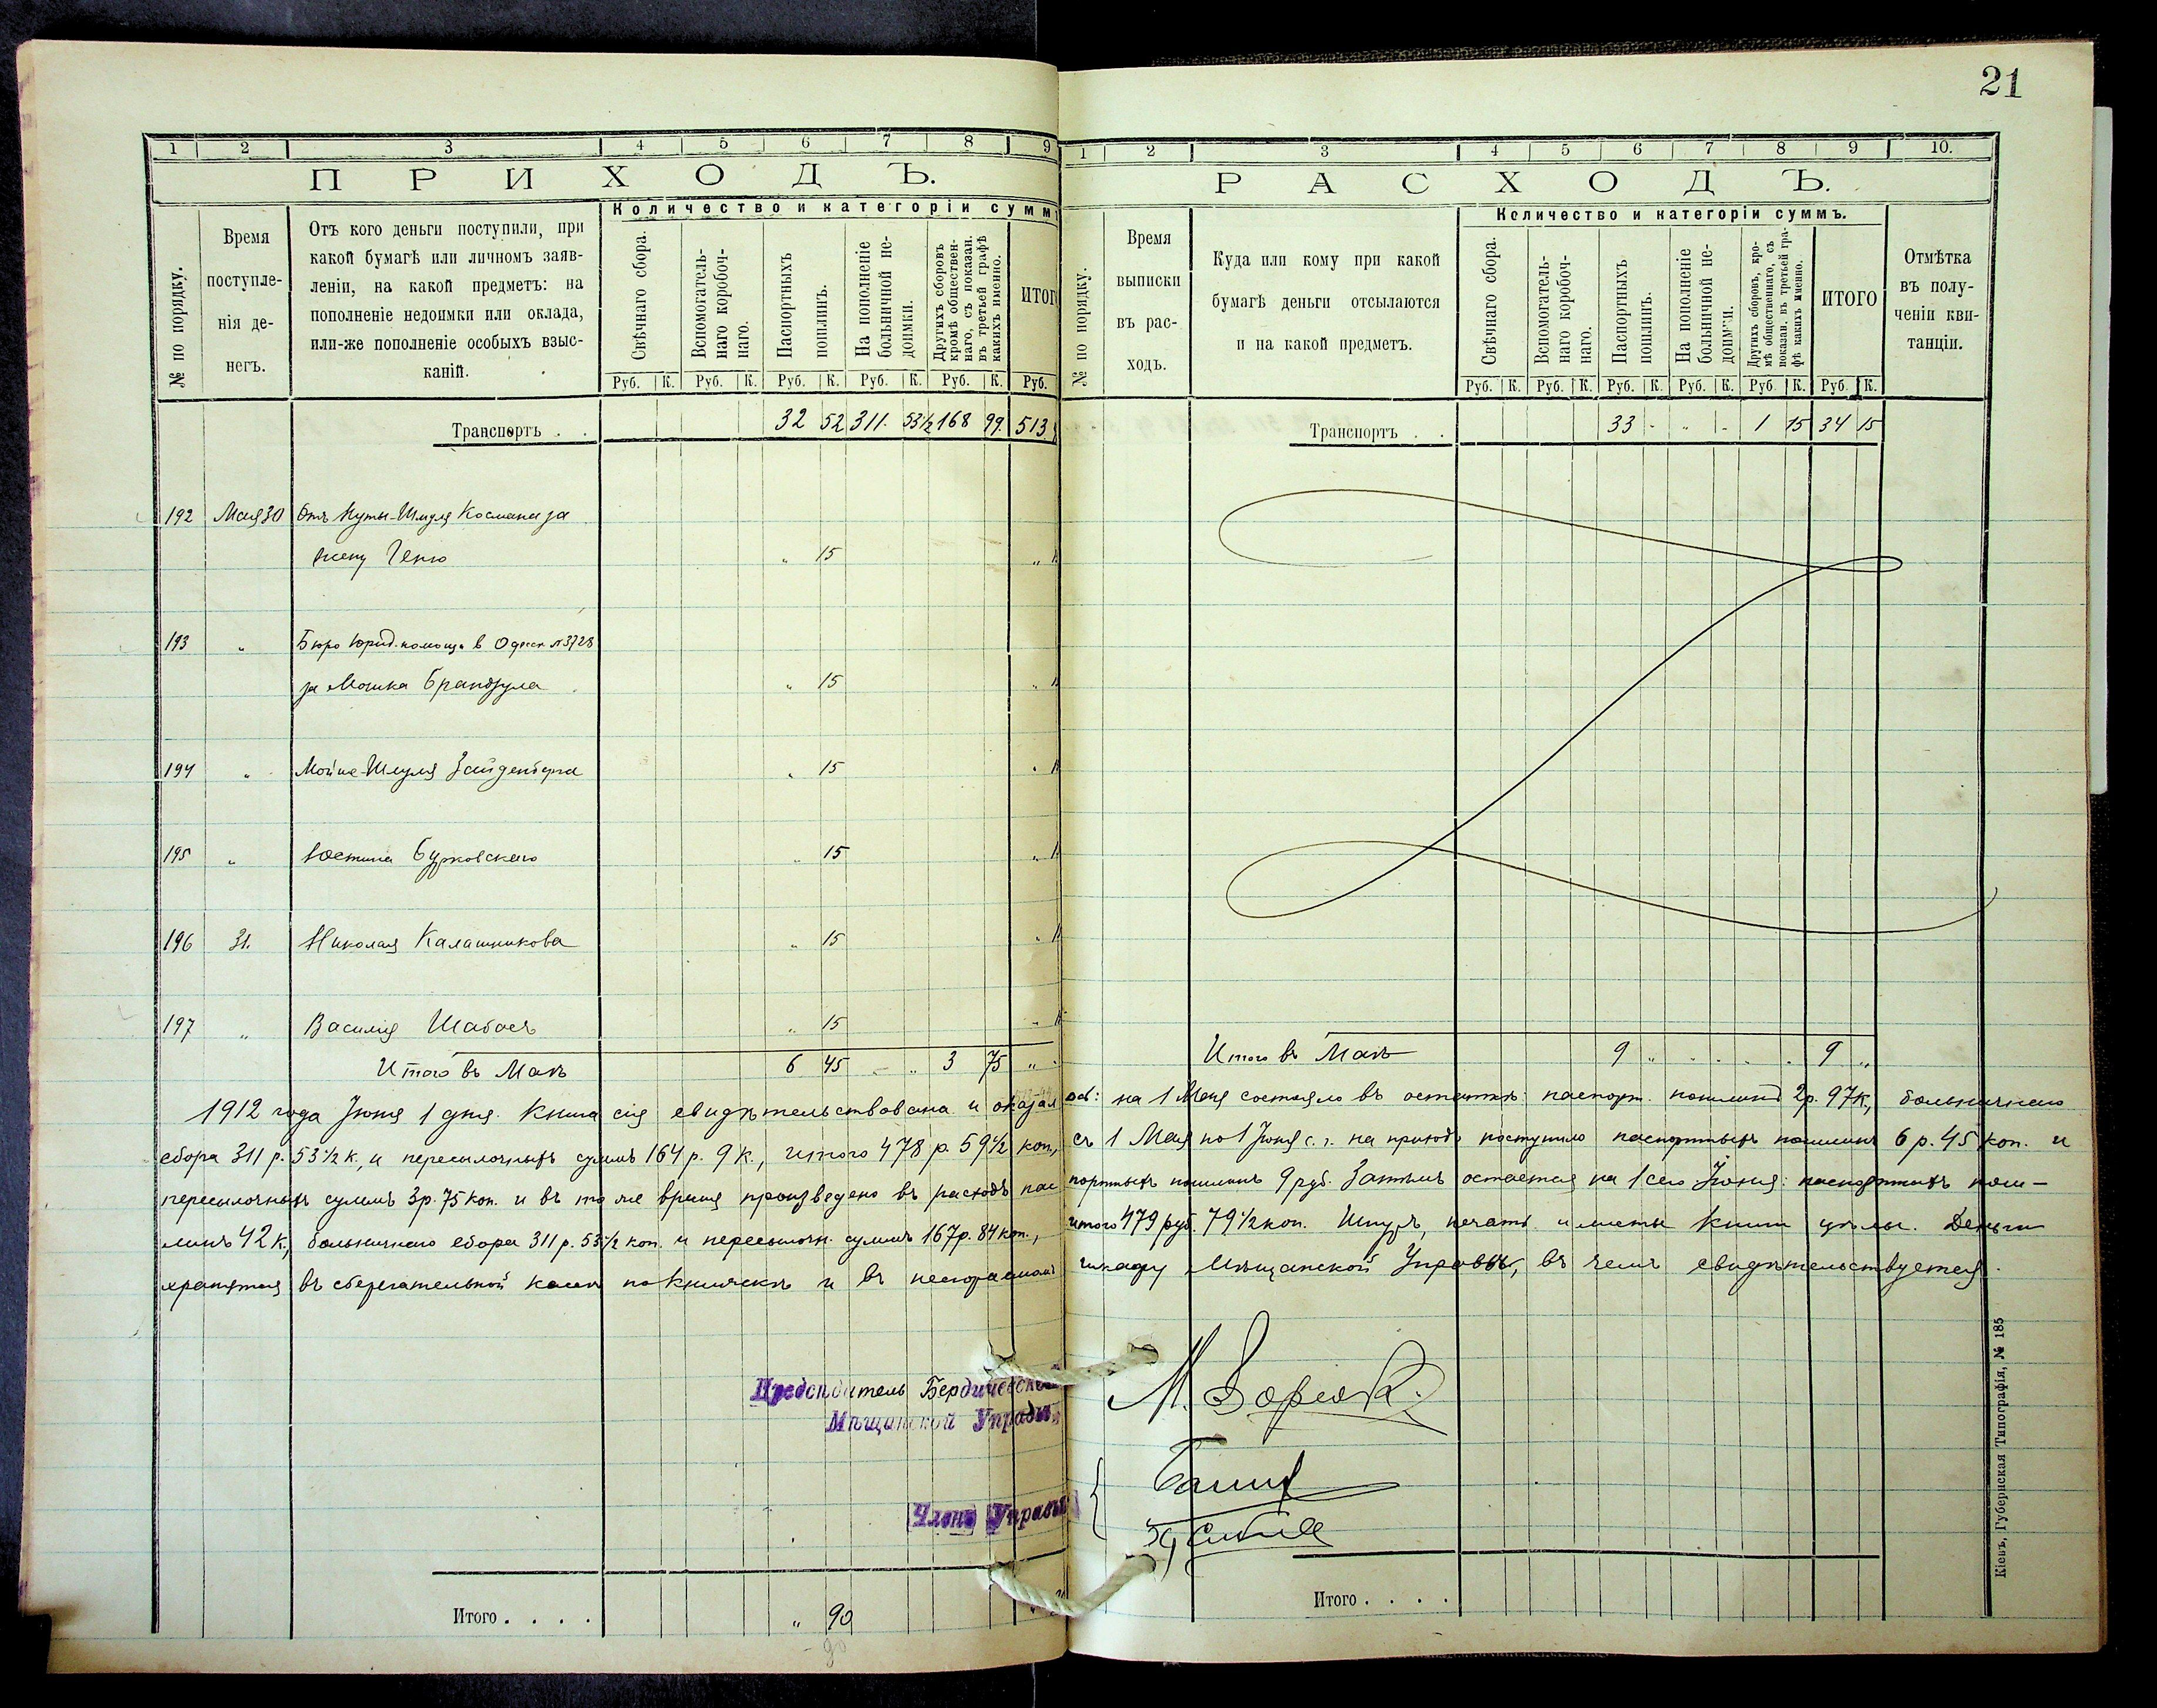 21
1 2 3 4 5 6 7 8 9
ПРИХОДЪ.
Количество и категоріи суммъ
№ по порядку.
Время
поступле-
нія де-
негъ.
Отъ кого деньги поступили, при
какой бумагѣ или личномъ заяв-
леніи, на какой предметъ: на
пополненіе недоимки или оклада,
или-же пополненіе особыхъ взыс-
каній.
Свѣчнаго сбора.
Вспомогатель-
наго коробоч-
наго.
Паспортныхъ
пошлинъ.
На пополненіе
больничной не-
доимки.
Другихъ сборовъ
кромѣ обществен-
наго, съ показан.
въ третьей графѣ
какихъ именно.
ИТОГ
Руб. К. Руб. К. Руб. К. Руб. К. Руб. К. Руб.
Транспортъ . . 32 52 311. 53½ 168 99. 513.
192 Мая 30 Отъ Нуты-Шмуля Космана за
жену Геню " 15
193 " Бюро Юрид. помощи в Одессѣ № 3728
за Мошка Брандзула " 15
194 " Мойше-Шмуля Зайденберга " 15
195 " Юстина Бурковскаго " 15
196 31. Николая Калашникова " 15
197 " Василія " 15
Итого въ Маѣ 6 45 " " 3 75 "
1 2 3 4 5 6 7 8 9 10.
РАСХОДЪ.
Количество и категоріи суммъ.
№ по порядку.
Время
выписки
въ рас-
ходъ.
Куда или кому при какой
бумагѣ деньги отсылаются
и на какой предметъ.
Свѣчнаго сбора.
Вспомогатель-
наго коробоч-
наго.
Паспортныхъ
пошлинъ.
На пополненіе
больничной не-
доимки.
Другихъ сборовъ, кро-
мѣ общественнаго, съ
показан. въ третьей гра-
фѣ какихъ именно.
ИТОГО
Отмѣтка
въ полу-
ченіи кви-
танціи.
Руб. К. Руб. К. Руб. К. Руб. К. Руб. К. Руб. К.
Транспортъ . . 33 - " - 1 15 34 15
Итого въ Маѣ 9 " 9 "
1912 года Іюня 1 дня. Книга сія свидѣтельствована и оказалось: на 1 Мая состояло въ остаткѣ: паспорт. пошлинъ 2р. 97к., больничнаго
сбора 311 р. 53½ к., и пересылочныхъ суммъ 164 р. 9 к., итого 478 р. 59½ коп., съ 1 Мая по 1 Іюня с. г. на приходъ поступило паспортныхъ пошлинъ 6 р. 45 коп. и
пересылочныхъ суммъ 3р. 75 коп. и въ то же время произведено въ расходъ паспортныхъ пошлинъ 9 руб. Затѣмъ остается на 1 сего Іюня: паспортныхъ пош-
линъ 42 к., больничнаго сбора 311 р. 53½ коп. и пересылочн. суммъ 167р. 84 коп., итого 479 руб. 79½ коп. Шнуръ, печать и листы книги цѣлы. Деньги
хранятся въ сберегательной кассѣ по книжкѣ и въ несгораемомъ шкафу Мѣщанской Управы, въ чемъ свидѣтельствуется.
Предсѣдатель Бердичевской
Мѣщанской Управы
Члены Управы
Итого . . . . " 90
90
Итого . . . .
Кіевъ, Губернская Типографія, № 185